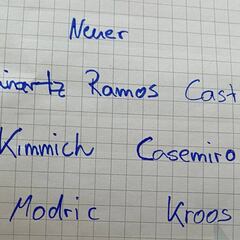 Neuer
inartz Ramos Cast
Kimmich Casemiro
Modric Kroos